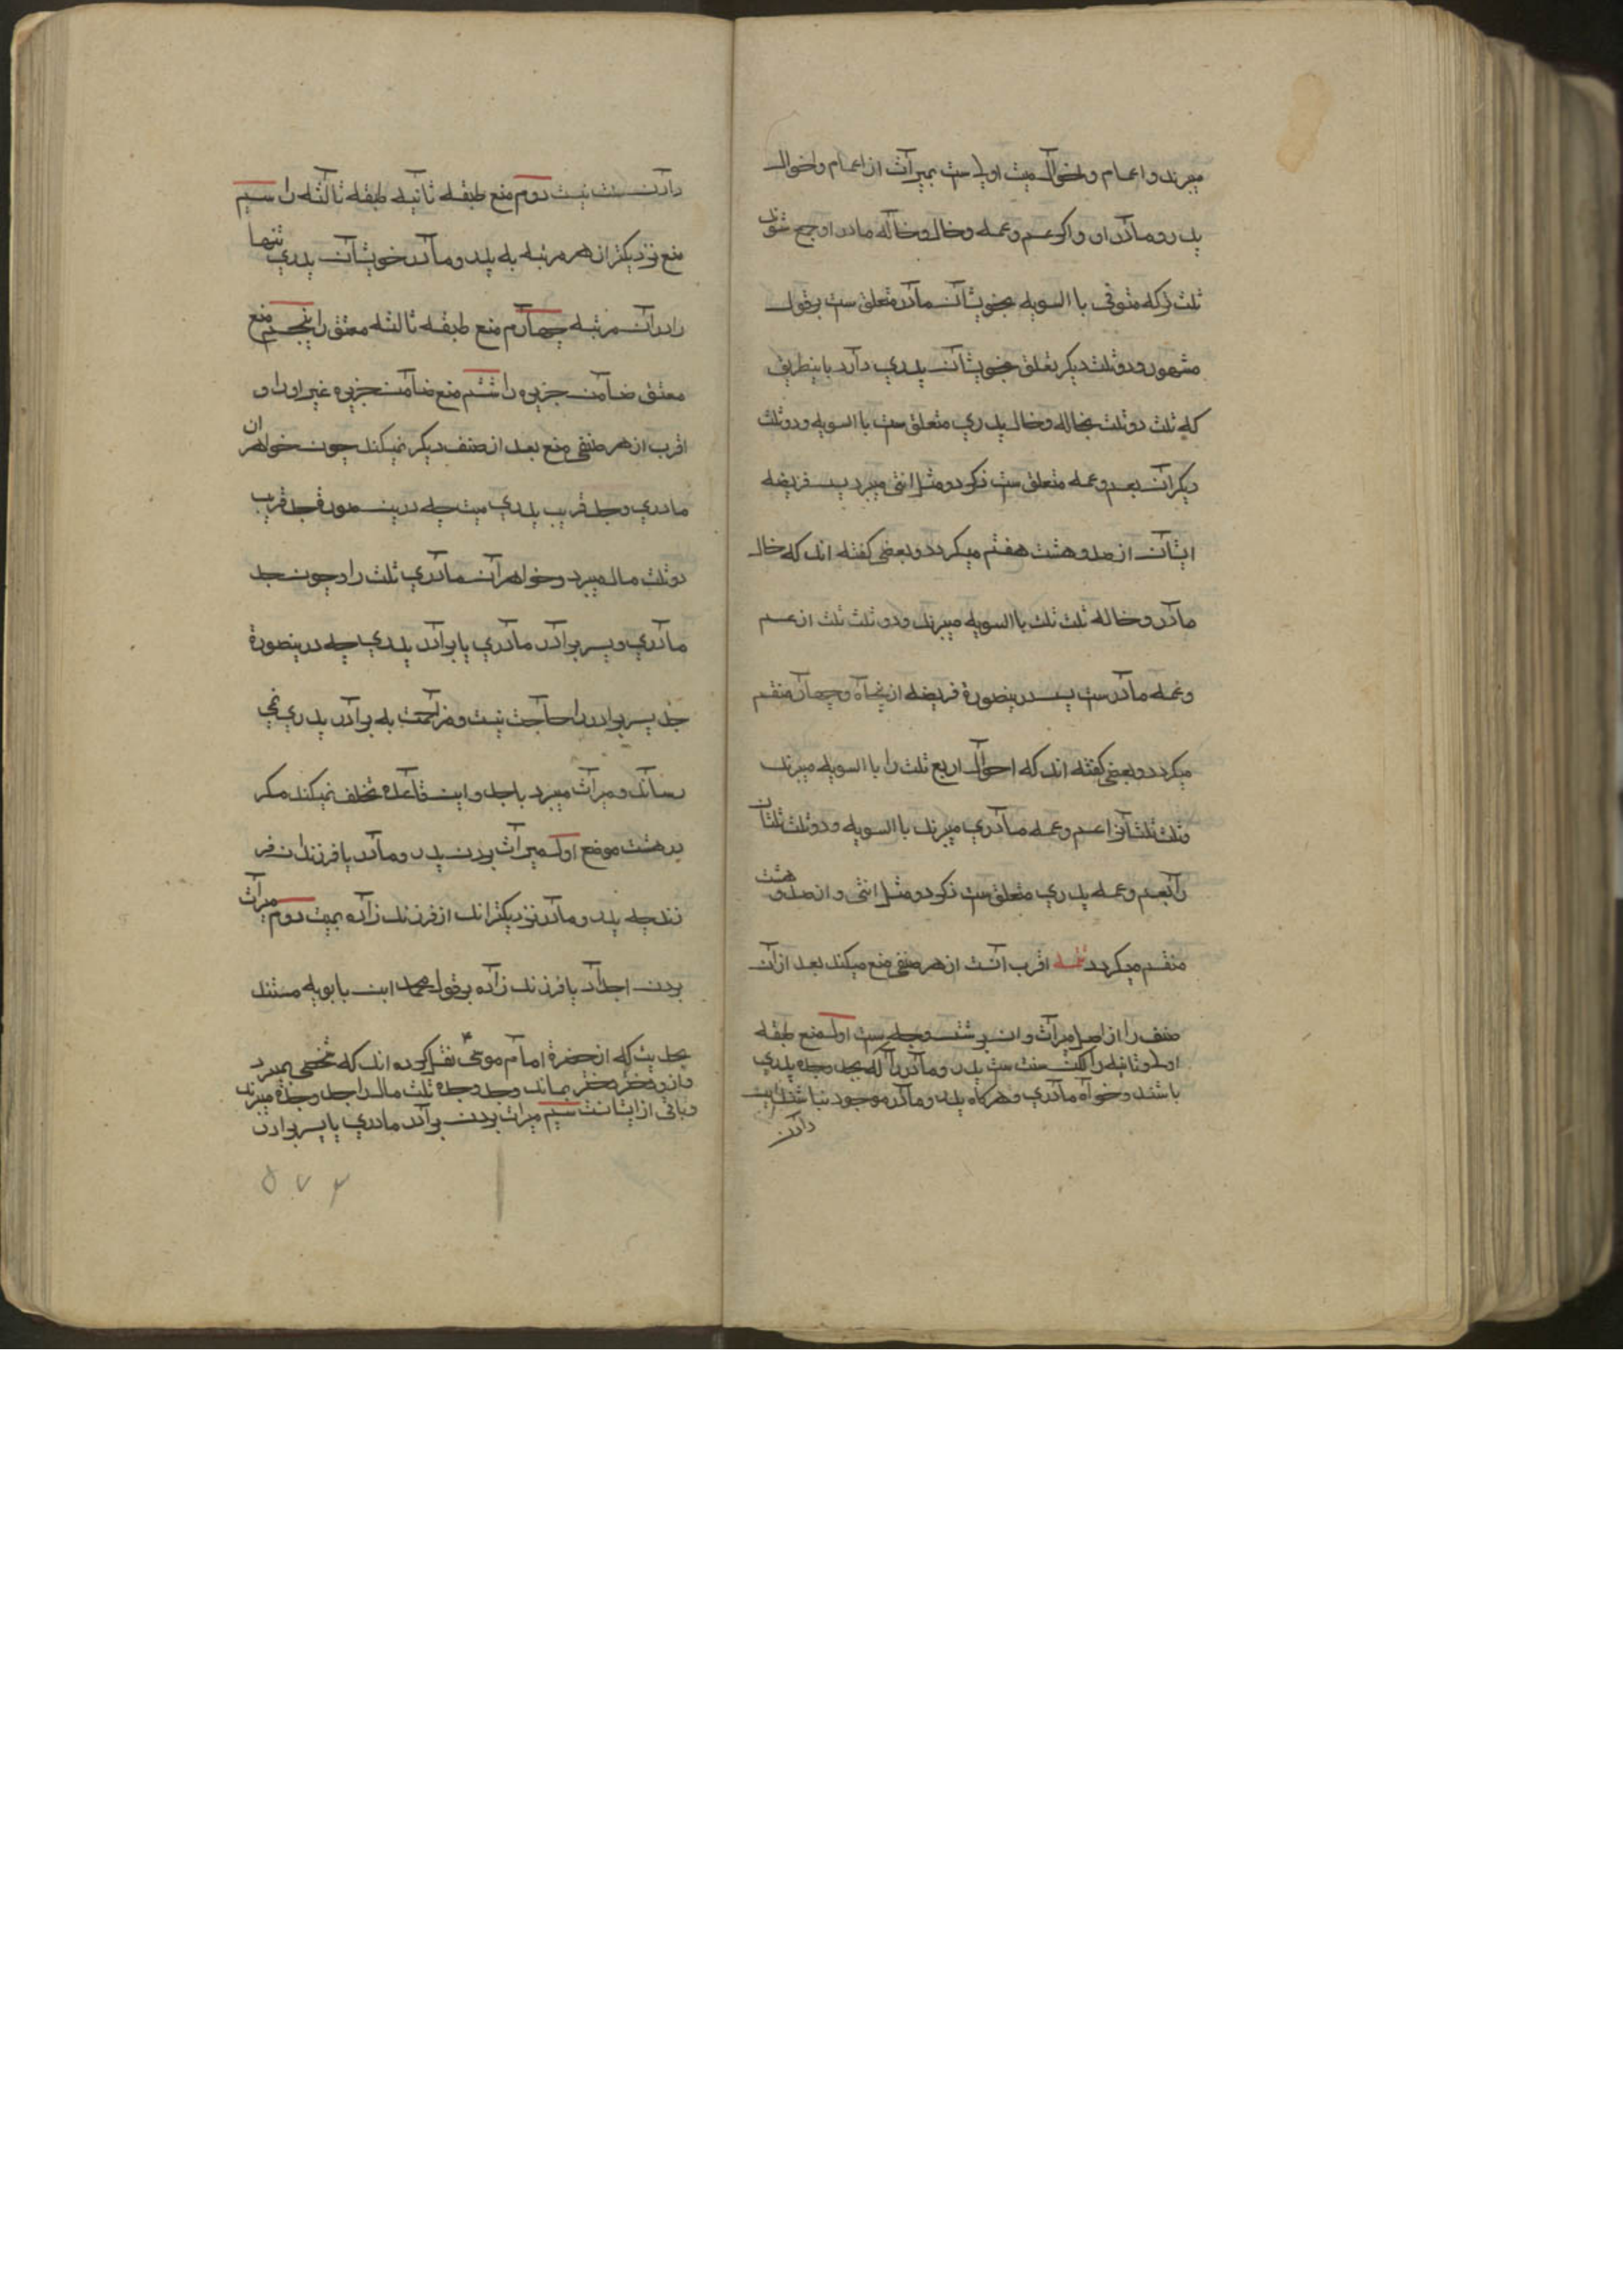 میبرند و اعمام و اخوال میت اولی ست بمیراث از اعمام و اخوال
پدر و مادر او و اگر عم و عمه و خال و خاله مادر او جمع شوند
ثلث ترکه متوفی با السویه بخویشان مادر متعلق ست بر قول
مشهور و دو ثلث دیگر تعلق بخویشان پدری دارد باینطریق
که ثلث دو ثلث بخاله و خال پدری متعلق ست با السویه و دو ثلث
دیگر آن بعم و عمه متعلق ست ذکر دو مثل انثی میبرد پس فریضه
ایشان از صد و هشت هفتم میگردد و بعضی گفته اند که خال
مادر و خاله ثلث ثلث با السویه میبرند و دو ثلث ثلث از عم
و عمه مادر ست پس درینصورة فریضه از پنجاه و چهار منقسم
میگردد و بعضی گفته اند که اخوال اربع ثلث را با السویه میبرند
و ثلث ثلثان را عم و عمه مادری میبرند با السویه و دو ثلث ثلثان
را بعم و عمه پدری متعلق ست ذکر دو مثل انثی و از صد و هشت
منقسم میگردد تتمه اقرب انست از هر صنفی منع میکند بعد از آن
صنف را از اصل میراث و ان بر شش وجه ست اول منع طبقه
اولی و ثانیه را لکن سنت ست پدر و مادر را که بجد و جده پدری
باشند و خواه مادری و هرگاه پدر و مادر موجود نباشند
دادن
دادن سنت نیست دوم منع طبقه ثانیه طبقه ثالثه را سیم
منع نزدیکتر از هر مرتبه به پدر و مادر خویشان پدری تنها
را در آن مرتبه چهارم منع طبقه ثالثه معتق را پنجم منع
معتق ضامن جزیره را ششم منع ضامن جزیره غیر او را و
اقرب از هر صنفی منع بعد از صنف دیگر نمیکند چون خواهران
مادری و جد قریب پدری میت چه درین صورة جد قریب
دو ثلث مال میبرد و خواهران مادری ثلث را و چون جد
مادری و پسر برادر مادری با برادر پدری چه درینصورة
جد پسر برادر را حاجت نیست و مزاحمت به برادر پدری نمی
رساند و میراث میبرد با جد و این قاعده تخلف نمیکند مگر
در هشت موضع اول میراث بردن پدر و مادر با فرزندان فر
زند چه پدر و مادر نزدیکتر اند از فرزند زاده بمیت دوم میراث
بردن اجداد با فرزند زاده بر قول محمد ابن بابویه مستند
بحدیث که از حضرة امام موسی نقل کرده اند که شخصی بمیرد
و از و دختر دختر بماند و جد و جده ثلث مال را جد و جده میبرند
و باقی از ایشانست سیم میراث بردن برادر مادری با پسر برادر
۵۷۳